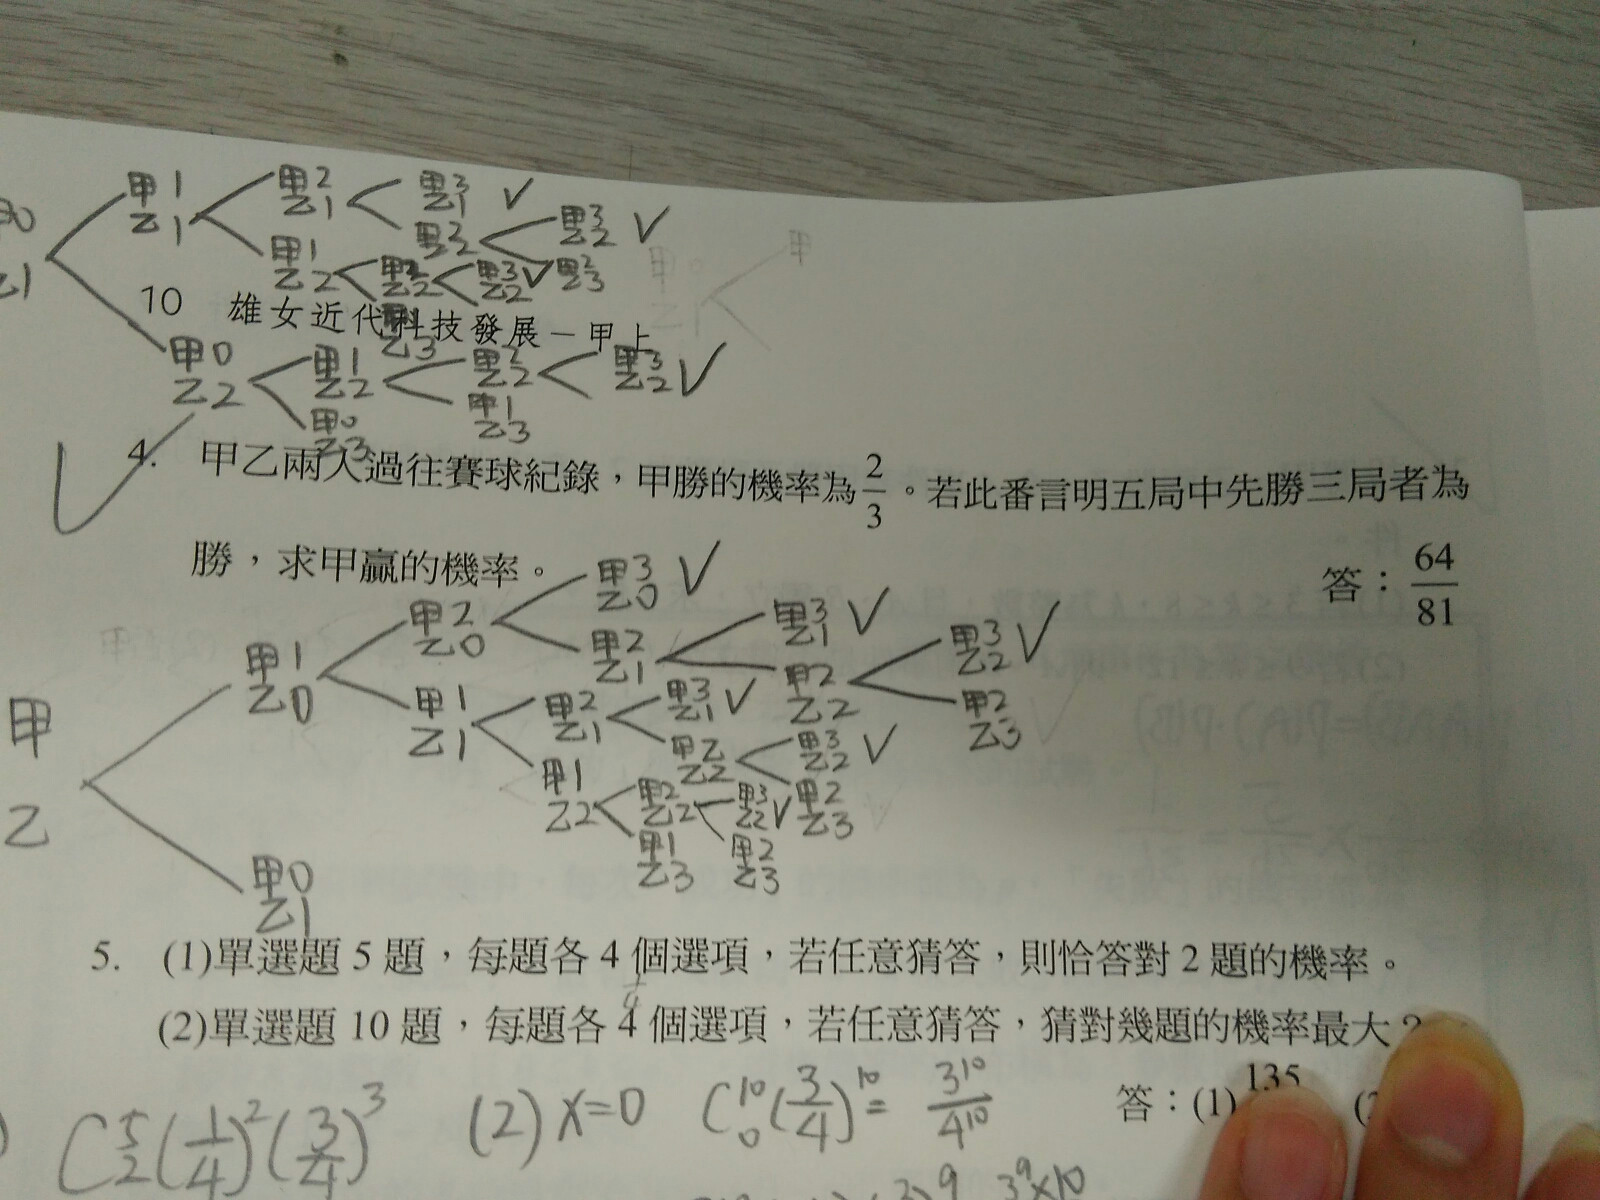 甲1 甲2 甲3 ✓
乙1 乙1 乙1
甲2 甲3 ✓
乙2 乙2
甲1 甲2 甲3 ✓ 甲2
乙2 乙2 乙2 乙3
甲1
乙3
10 雄女近代科技發展－甲上
甲0 甲1 甲2 甲3 ✓
乙2 乙2 乙2 乙2
甲0 甲1
乙3 乙3
4. 甲乙兩人過往賽球紀錄，甲勝的機率為2/3。若此番言明五局中先勝三局者為
勝，求甲贏的機率。
答：64/81
甲2 甲3 ✓
乙0 乙0
甲1 甲2 甲3 ✓
乙0 乙1 乙1
甲2 甲3 ✓
乙2 乙2
甲2
乙3
甲1 甲2 甲3 ✓
乙1 乙1 乙1
甲2 甲3 ✓
乙2 乙2
甲2
乙3
甲1 甲2 甲3 ✓
乙2 乙2 乙2
甲1 甲2
乙3 乙3
甲
乙
甲0
乙1
5. (1)單選題 5 題，每題各 4 個選項，若任意猜答，則恰答對 2 題的機率。
1/4
(2)單選題 10 題，每題各 4 個選項，若任意猜答，猜對幾題的機率最大？
答：(1) 135
C5/2(1/4)^2(3/4)^3
(2) x=0 C10/0(3/4)^10=3^10/4^10